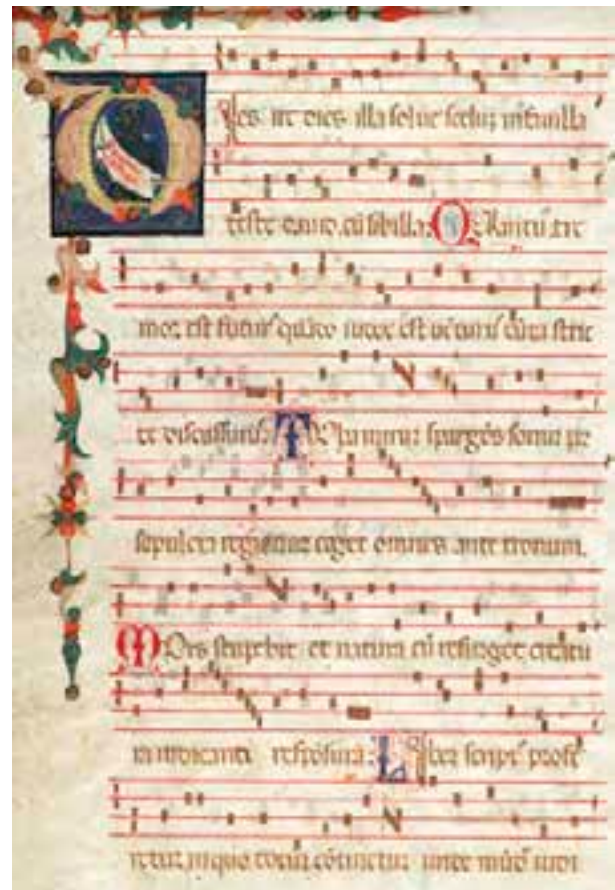 Dies ire dies illa soluet secluz in fauilla
teste dauid cũ sibilla. Quantũ tre
mor est futur' quãdo iudex est uẽturus cũta stric
te discussurus. Tuba miruz spargẽs sonuz per
sepulcra regionuz coget omnes ante tronum.
Mors stupebit et natura cũ resurget creatu
ra iudicanti respõsura. Liber script' profe
retur in quo totuz cõtinetur unde mũd' iudi